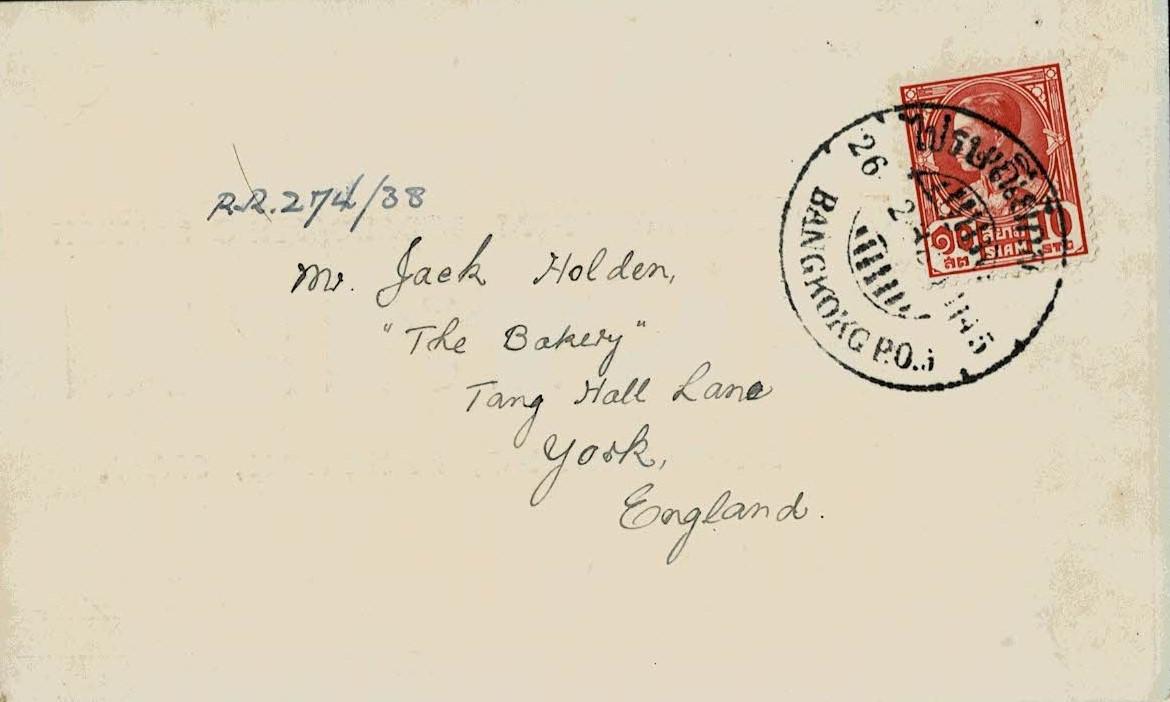 R.R.274/38
Mr. Jack Holden,
"The Bakery"
Tang Hall Lane
York,
England.
๑๐ สยาม 10
สต SIAM STG
26
BANGKOK G.P.O.